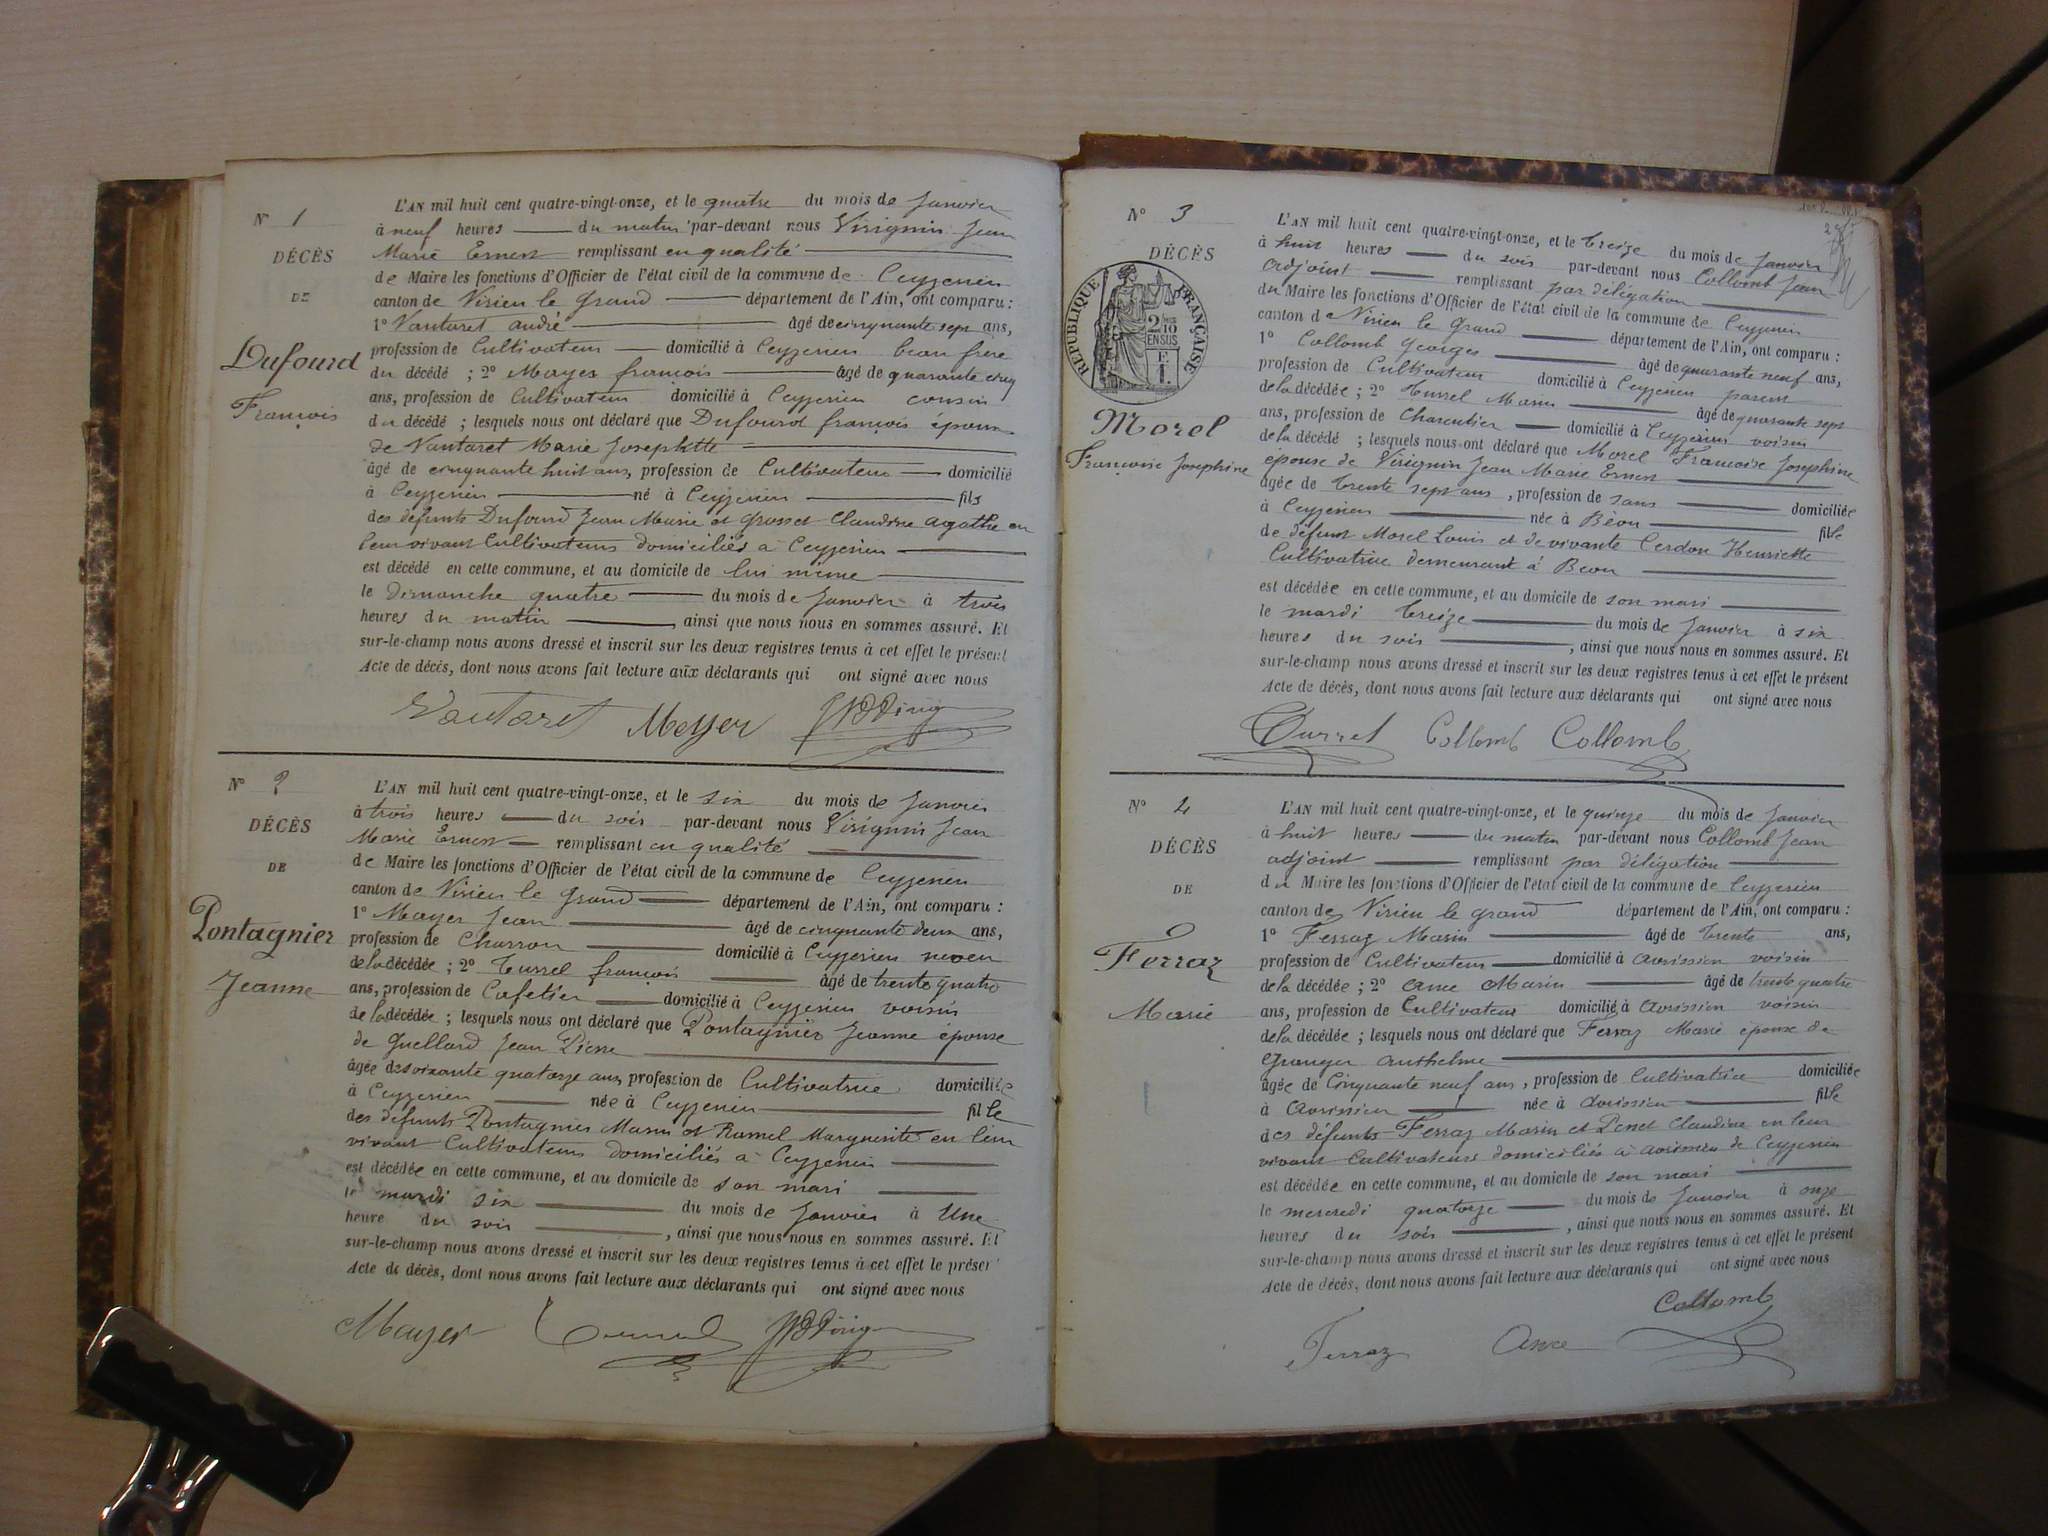 N° 1
DÉCÈS
DE
Dufourd
François
L'AN mil huit cent quatre-vingt-onze, et le quatre du mois de Janvier
à neuf heures du matin par-devant nous Virignin Jean
Marie Ernest remplissant en qualité
de Maire les fonctions d'Officier de l'état civil de la commune de Ceyzerieu
canton de Virieu le Grand département de l'Ain, ont comparu :
1° Vautaret andré âgé de cinquante sept ans,
profession de Cultivateur domicilié à Ceyzerieu beau frère
du décédé ; 2° Mayer françois âgé de quarante cinq
ans, profession de Cultivateur domicilié à Ceyzerieu cousin
du décédé ; lesquels nous ont déclaré que Dufourd françois époux
de Vautaret Marie Josephtte
âgé de cinquante huit ans, profession de Cultivateur domicilié
à Ceyzerieu né à Ceyzerieu fils
des défunts Dufourd Jean Marie et Grosset Claudine agathe en
leur vivant Cultivateurs domiciliés à Ceyzerieu
est décédé en cette commune, et au domicile de lui même
le dimanche quatre du mois de Janvier à trois
heures du matin , ainsi que nous nous en sommes assuré. Et
sur-le-champ nous avons dressé et inscrit sur les deux registres tenus à cet effet le présent
Acte de décès, dont nous avons fait lecture aux déclarants qui ont signé avec nous
Vautaret Meyer
N° 2
DÉCÈS
DE
Pontagnier
Jeanne
L'AN mil huit cent quatre-vingt-onze, et le six du mois de Janvier
à trois heures du soir par-devant nous Virignin Jean
Marie Ernest remplissant en qualité
de Maire les fonctions d'Officier de l'état civil de la commune de Ceyzerieu
canton de Virieu le Grand département de l'Ain, ont comparu :
1° Mayer Jean âgé de cinquante deux ans,
profession de Charron domicilié à Ceyzerieu neveu
de la décédée ; 2° Turrel françois âgé de trente quatre
ans, profession de Cafetier domicilié à Ceyzerieu voisin
de la décédée ; lesquels nous ont déclaré que Pontagnier Jeanne épouse
de Guellard Jean Pierre
âgée de soixante quatorze ans, profession de Cultivatrice domiciliée
à Ceyzerieu née à Ceyzerieu fille
des défunts Pontagnier Marin et Ramel Marguerite en leur
vivant Cultivateurs domiciliés à Ceyzerieu
est décédée en cette commune, et au domicile de son mari
le mardi six du mois de Janvier à Une
heure du soir , ainsi que nous nous en sommes assuré. Et
sur-le-champ nous avons dressé et inscrit sur les deux registres tenus à cet effet le présent
Acte de décès, dont nous avons fait lecture aux déclarants qui ont signé avec nous
Mayer
N° 3
DÉCÈS
RÉPUBLIQUE FRANÇAISE
2/10
EN SUS
Morel
Françoise Josephine
L'AN mil huit cent quatre-vingt-onze, et le treize du mois de Janvier
à huit heures du soir par-devant nous Collomb Jean
adjoint remplissant par délégation
du Maire les fonctions d'Officier de l'état civil de la commune de Ceyzerieu
canton de Virieu le Grand département de l'Ain, ont comparu :
1° Collomb Georges âgé de quarante neuf ans,
profession de Cultivateur domicilié à Ceyzerieu parent
de la décédée ; 2° Turrel Marin âgé de quarante sept
ans, profession de Charcutier domicilié à Ceyzerieu voisin
de la décédé ; lesquels nous ont déclaré que Morel Francoise Josephine
épouse de Virignin Jean Marie Ernest
âgée de trente sept ans , profession de sans domiciliée
à Ceyzerieu née à Béon fille
de défunt Morel Louis et de vivante Cerdon Henriette
Cultivatrice demeurant à Beon
est décédée en cette commune, et au domicile de son mari
le mardi treize du mois de Janvier à six
heures du soir , ainsi que nous nous en sommes assuré. Et
sur-le-champ nous avons dressé et inscrit sur les deux registres tenus à cet effet le présent
Acte de décès, dont nous avons fait lecture aux déclarants qui ont signé avec nous
Turrel Collomb Collomb
N° 4
DÉCÈS
DE
Ferraz
Marie
L'AN mil huit cent quatre-vingt-onze, et le quinze du mois de Janvier
à huit heures du matin par-devant nous Collomb Jean
adjoint remplissant par délégation
du Maire les fonctions d'Officier de l'état civil de la commune de Ceyzerieu
canton de Virieu le grand département de l'Ain, ont comparu :
1° Ferraz Marin âgé de trente ans,
profession de Cultivateur domicilié à Avrissieu voisin
de la décédée ; 2° Ance Marin âgé de trente quatre
ans, profession de Cultivateur domicilié à Avrissieu voisin
de la décédée ; lesquels nous ont déclaré que Ferraz Marie épouse de
Granger Anthelme
âgée de Cinquante neuf ans , profession de Cultivatrice domiciliée
à Avrissieu née à Avrissieu fille
des défunts Ferraz Marin et Penet Claudine en leur
vivant Cultivateurs domiciliés à Avrissieu de Ceyzerieu
est décédée en cette commune, et au domicile de son mari
le mercredi quatorze du mois de Janvier à onze
heures du soir , ainsi que nous nous en sommes assuré. Et
sur-le-champ nous avons dressé et inscrit sur les deux registres tenus à cet effet le présent
Acte de décès, dont nous avons fait lecture aux déclarants qui ont signé avec nous
Collomb
Ferraz Ance